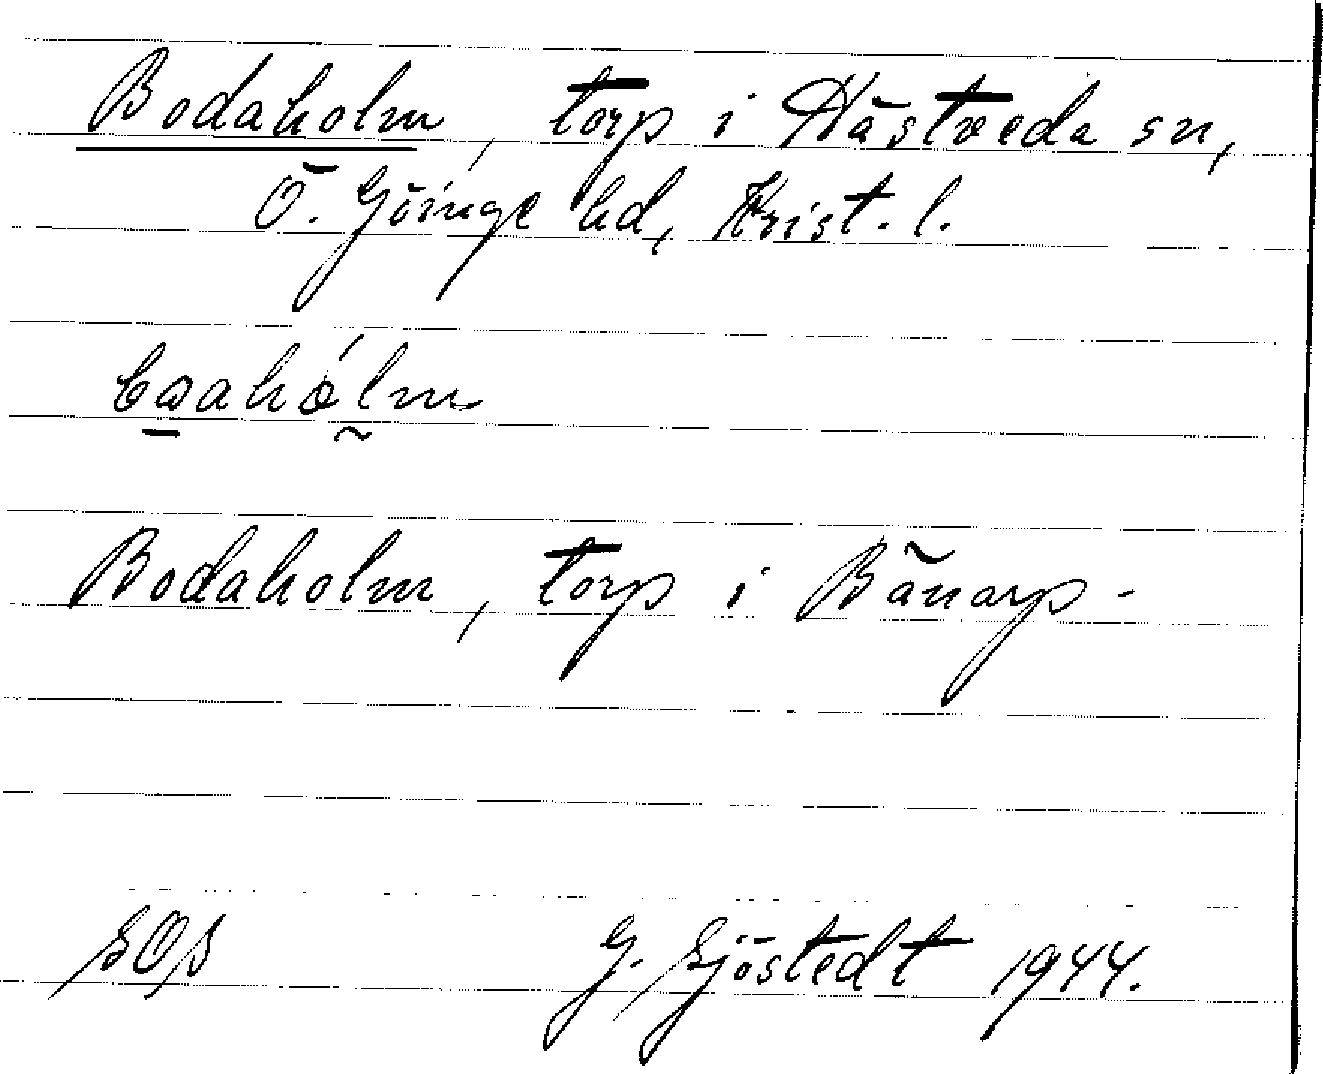 Bodaholm, torp i Hästveda sn,
Ö. Göinge hd, Krist. l.
Bodaholm, torp i Bånarp -
SOS G. Sjöstedt 1944.